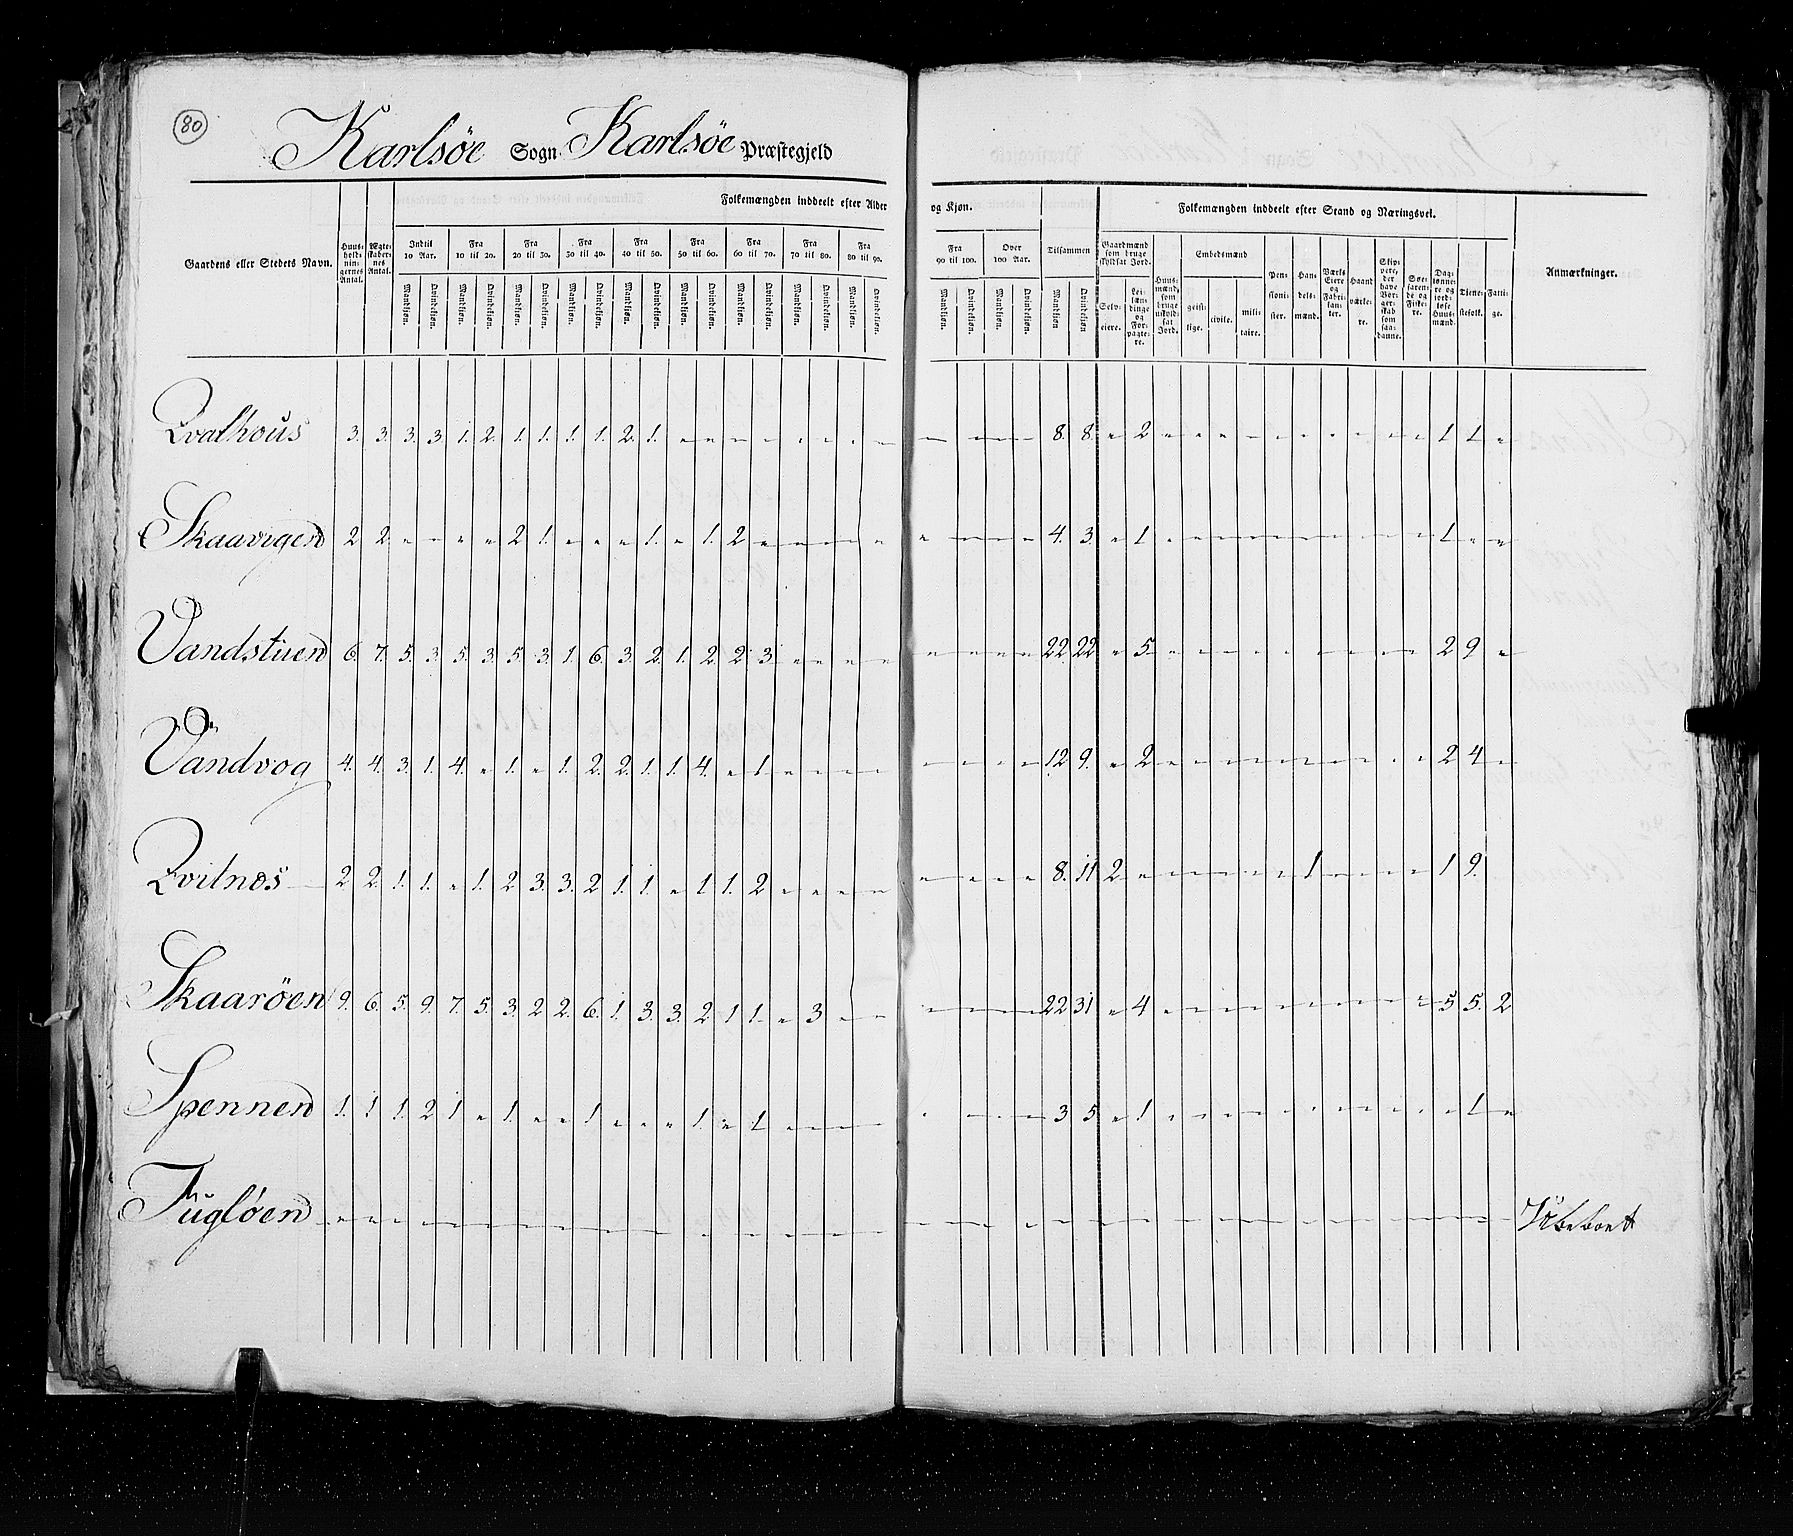 80
Karlsöe Sogn Karlsöe Præstegjeld
Folkemængden inddeelt efter Alder og Kjøn.
Folkemængden inddeelt efter Stand og Næringsvei.
Gaardens eller Stedets Navn.
Huus- hold- nin- gernes Antal.
Ægte- skaber- nes Antal.
Indtil 10 Aar.
Fra 10 til 20.
Fra 20 til 30.
Fra 30 til 40.
Fra 40 til 50.
Fra 50 til 60.
Fra 60 til 70.
Fra 70 til 80.
Fra 80 til 90.
Fra 90 til 100.
Over 100 Aar.
Tilsammen
Mandkjøn. Qvindekjøn. Mandkjøn. Qvindekjøn. Mandkjøn. Qvindekjøn. Mandkjøn. Qvindekjøn. Mandkjøn. Qvindekjøn. Mandkjøn. Qvindekjøn. Mandkjøn. Qvindekjøn. Mandkjøn. Qvindekjøn. Mandkjøn. Qvindekjøn. Mandkjøn. Qvindekjøn. Mandkjøn. Qvindekjøn. Mandkjøn Qvindekjøn
Gaardmænd som bruge skyldsat Jord.
Selv- eiere.
Lei- læn- dinge og For- pagte- re.
Huus- mænd, som bruge uskyld- sat Jord.
Embedsmænd
geist- lige.
civile.
mili- taire.
Pen- sioni- ster.
Han- dels- mænd.
Værks Eiere og Fabri- kan- ter.
Haand værke- re.
Skip- pere, der have Bor- ger- skab som saa- danne.
Søe- farende og Fiske- re.
Dag- lønne- re og jord- løse Huus- mænd.
Tjene- stefolk.
Fatti- ge.
Anmærkninger.
Qvalhous 3. 3. 3. 3. 1. 2. 1. 1. 1. 1. 2. 1. 8. 8. 2 1 1
Skaavigen 2 2. 2 1. 1. 1. 2 4. 3. 1. 1.
Vandstuen 6. 7. 5. 3. 5. 3. 5. 3. 1. 6. 3. 2. 1. 2. 2. 3. 22 22 5. 2 9.
Vandvog 4. 4. 3. 1. 4. 1. 1. 2. 2. 1. 1. 4. 1. 12 9. 2 2 4.
Qvitnos 2 2. 1. 1. 1. 2 3. 3. 2 1. 1. 1 1. 2 8. 11 2 1 1 9.
Skaaröen 9. 6. 5. 9. 7. 5. 3. 2 2. 6. 1. 3. 3. 2 1 1. 3 22 31 4 5 5. 2
Spennen 1. 1 1. 2 1. 1. 1. 1. 1 3 5 1. 1.
Fuglöen Ubeboet